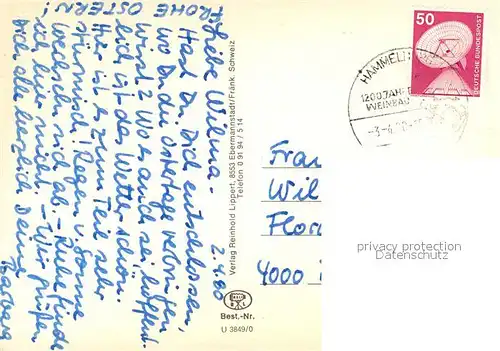 FROHE OSTERN!
2.4.80
Liebe Wilma.
Hast du dich entschlossen,
wo du die Ostertage verbringen
wirst? Wo es auch sei: hoffent-
lich ist das Wetter schön.
Hier ist es zum Teil sehr
stürmisch! Regen u. Sonne
wechseln sich ab. - Ruhe finde
ich hier nicht. - Wir grüßen
dich alle herzlich Deine
Barbara
Verlag Reinhold Lippert, 8553 Ebermannstadt/Fränk. Schweiz
Telefon 0 91 94 / 5 14
Best.-Nr.
U 3849/0
50
DEUTSCHE BUNDESPOST
HAMMEL
1200 JAH
WEINBAU
Frau
Wil
Flor
4000
privacy protection
Datenschutz